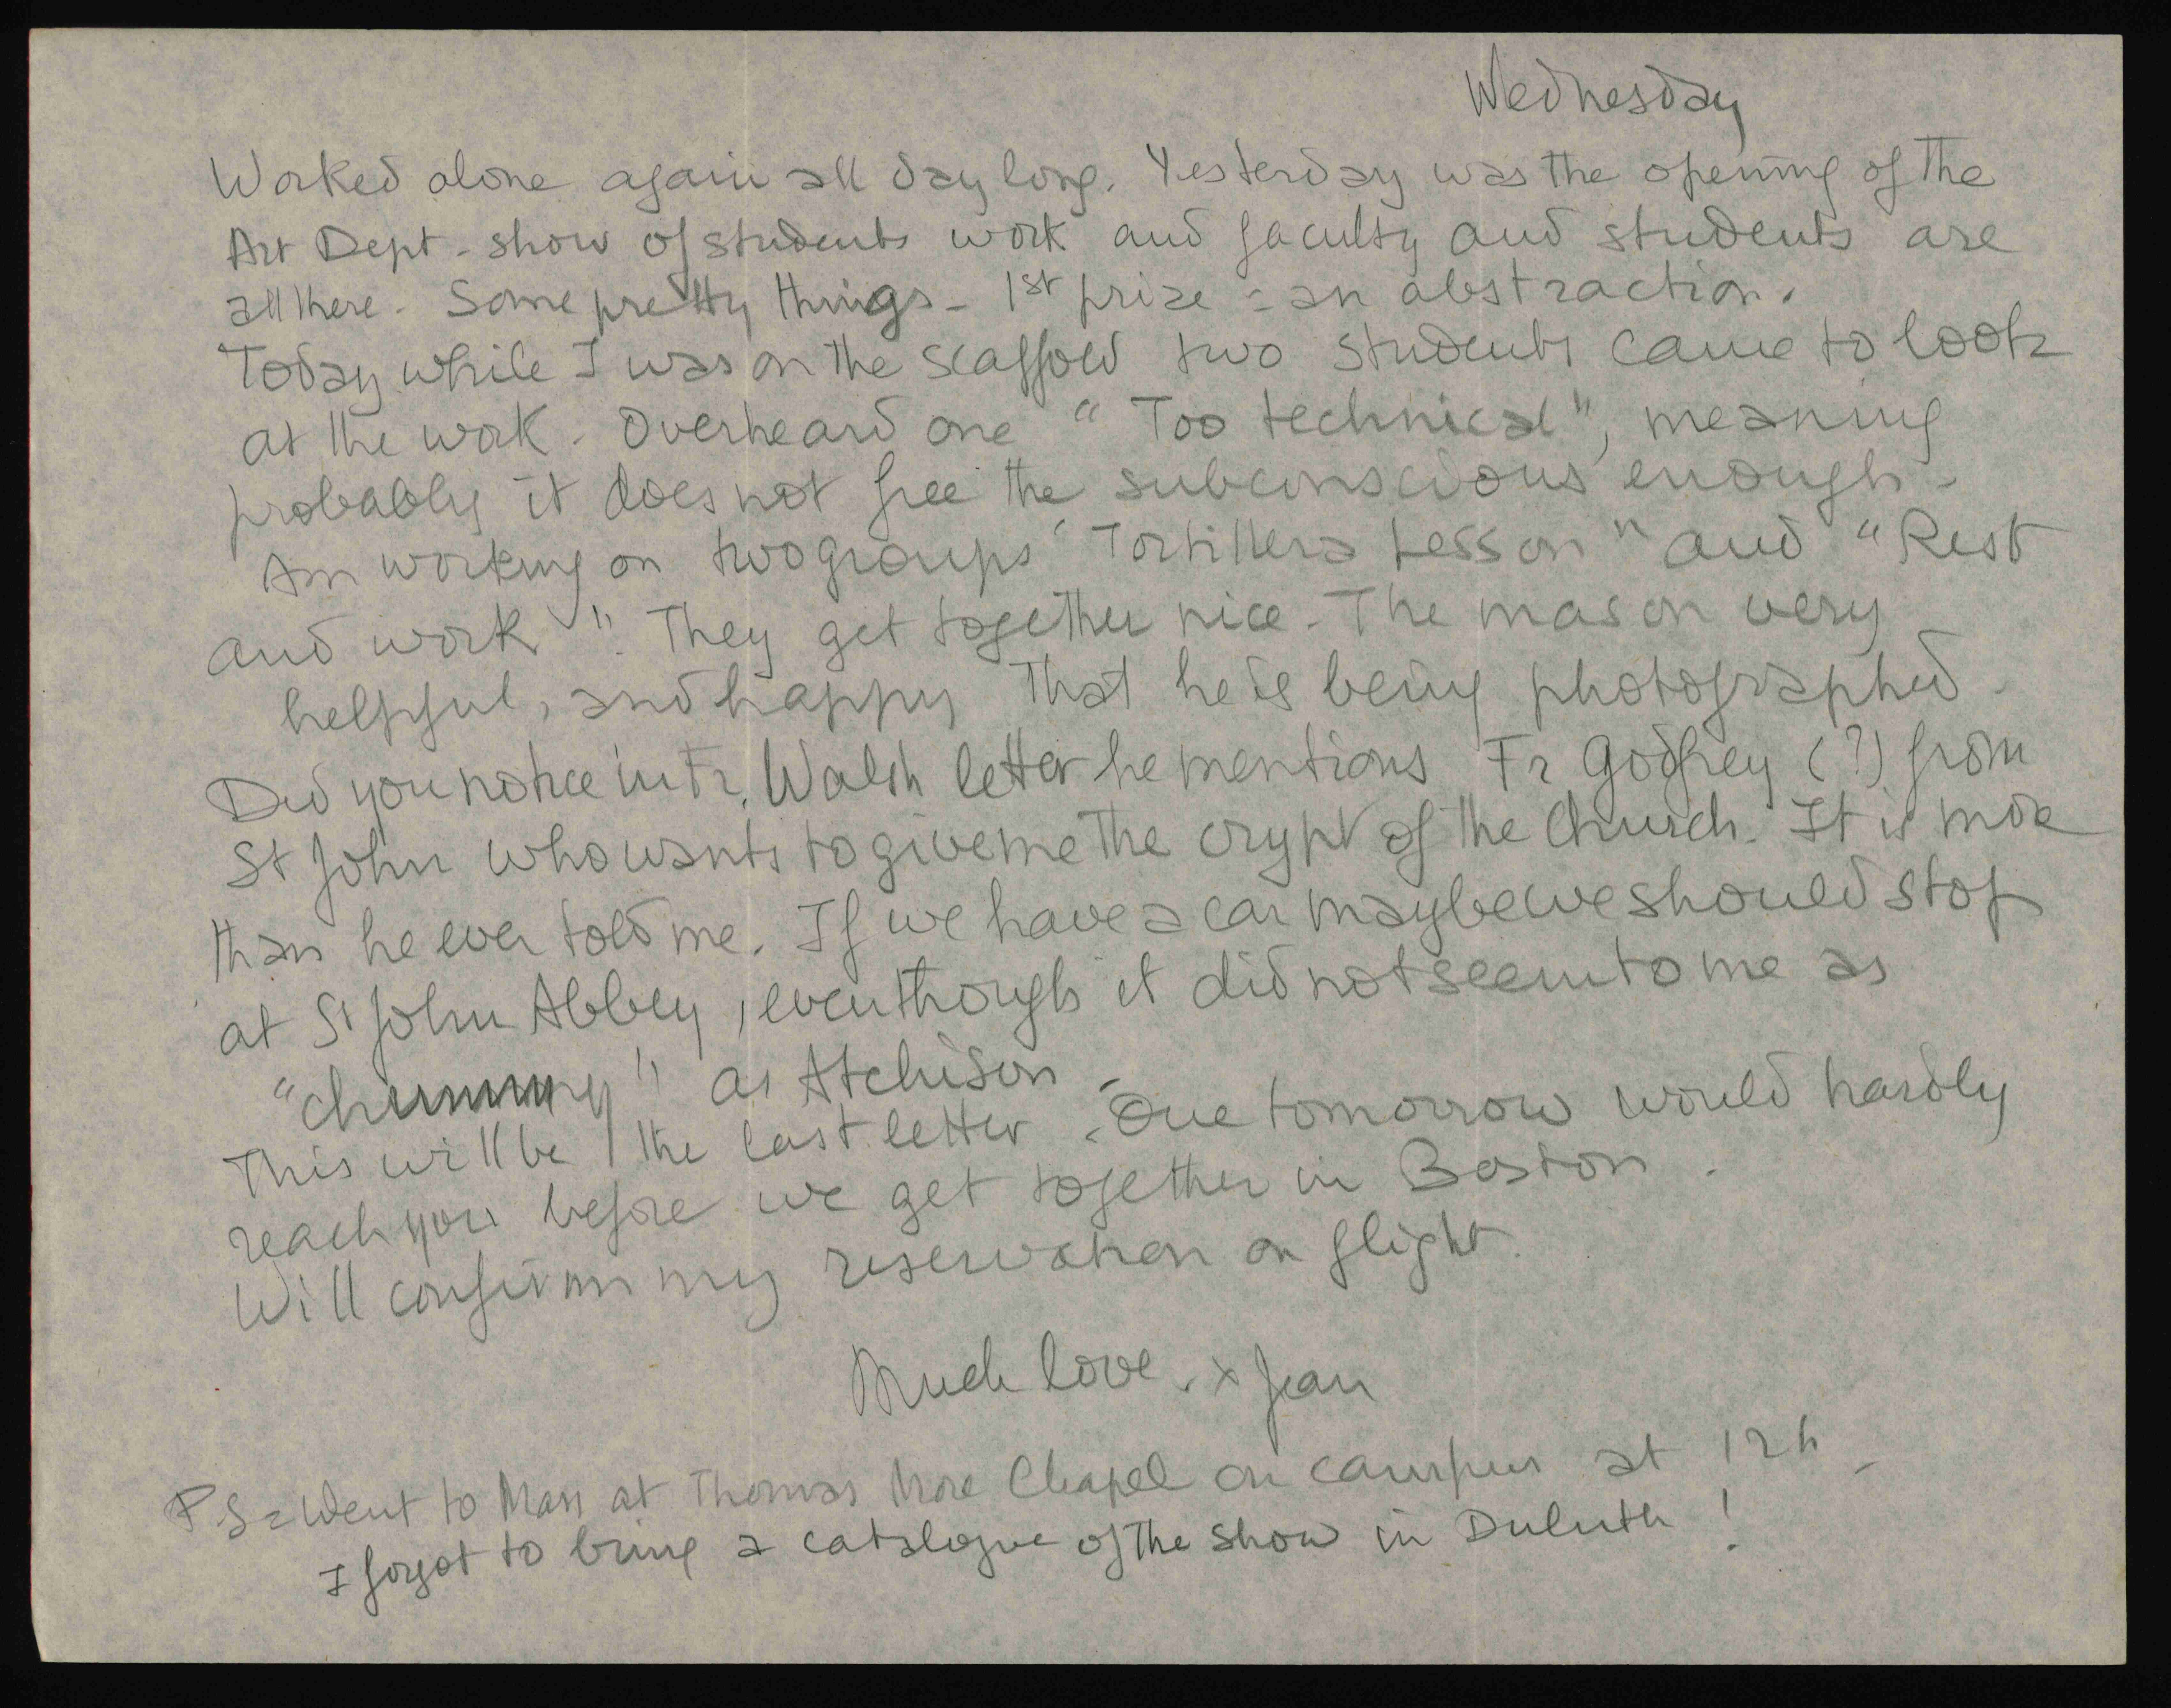 Wednesday
Worked alone again all day long. Yesterday was the opening of the
Art Dept - show of students work and faculty and students are
all there. Some pretty things - 1st prize = an abstraction.
Today while I was on the scaffold two students came to look
at the work. Overheard one "Too technical", meaning
probably it does not free the subconscious enough -
Am working on two groups "Tortillera Lesson" and "Rest
and work". They get together nice. The mason very
helpful, and happy that he is being photographed.
Did you notice in Fr. Walsh letter he mentions Fr Godfrey (?) from
St John who wants to give me the crypt of the Church. It is more
than he ever told me. If we have a car maybe we should stop
at St John Abbey, even though it did not seem to me as
"chummy" as Atchison -
This will be the last letter. One tomorrow would hardly
reach you before we get together in Boston.
Will confirm my reservation on flight.
Much love. x Jean
PS = Went to Mass at Thomas More Chapel on campus at 12h -
I forgot to bring a catalogue of the show in Duluth!